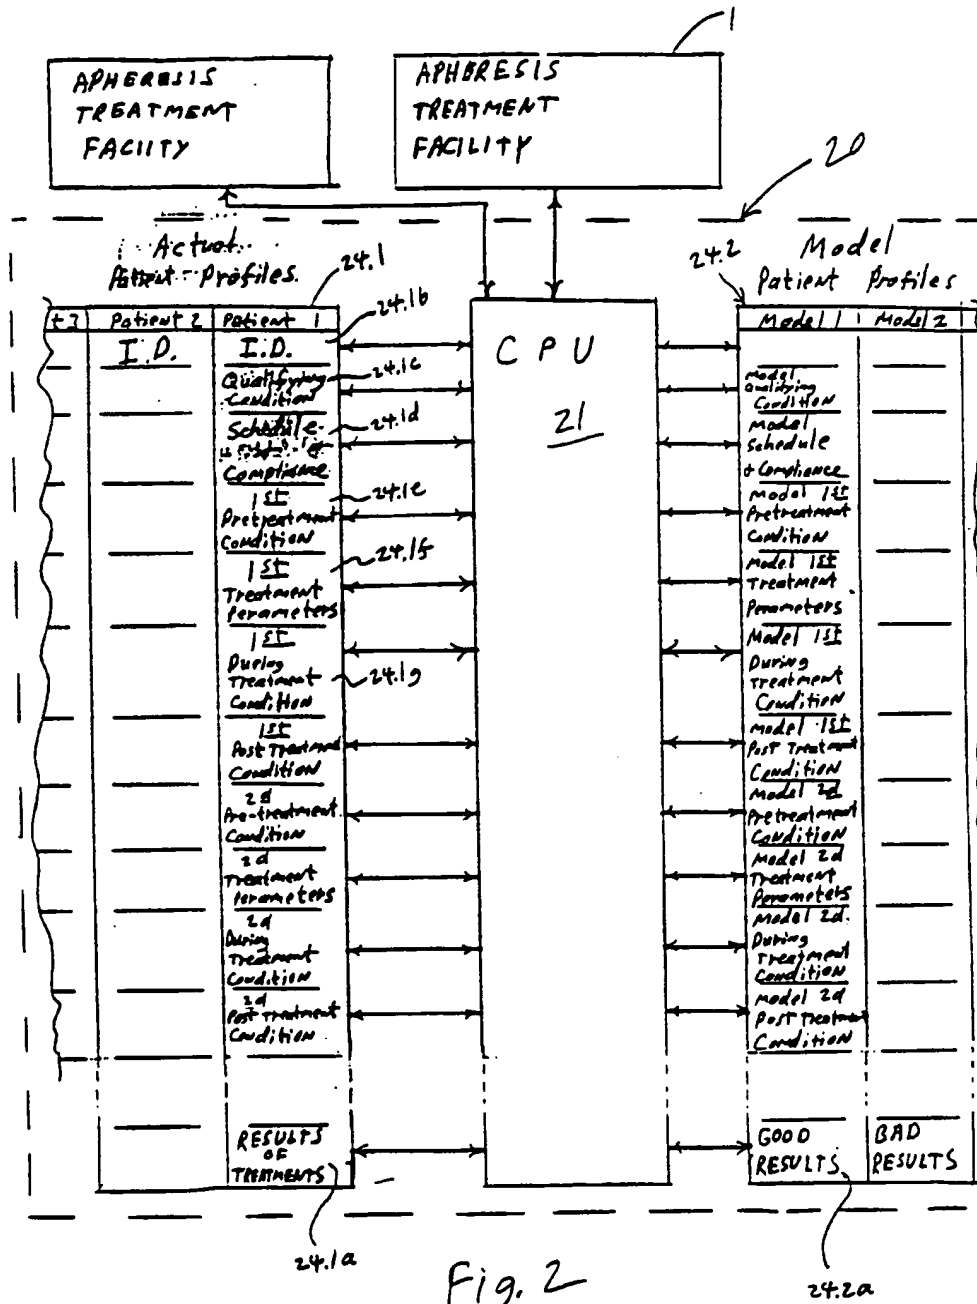 1
APHERESIS
TREATMENT
FACIITY
APHERESIS
TREATMENT
FACILITY
20
Actual
Patient Profiles
24.1
24.1b
24.2
Model
Patient Profiles
t 3
Patient 2
Patient 1
I.D.
I.D.
24.1c
Qualifying
Condition
24.1d
Schedule
Compliance
24.1e
1st
Pretreatment
Condition
24.1f
1st
Treatment
Perameters
1st
During
Treatment
Condition
24.1g
1st
Post Treatment
Condition
2d
Pre-treatment
Condition
2d
Treatment
Perameters
2d
During
Treatment
Condition
2d
Post Treatment
Condition
RESULTS
OF
TREATMENTS
24.1a
CPU
21
Model 1
Model 2
Model
Qualifying
Condition
Model
Schedule
+ Compliance
Model 1st
Pretreatment
Condition
Model 1st
Treatment
Perameters
Model 1st
During
Treatment
Condition
Model 1st
Post Treatment
Condition
Model 2d
Pretreatment
Condition
Model 2d
Treatment
Perameters
Model 2d.
During
Treatment
Condition
Model 2d
Post Treatment
Condition
GOOD
RESULTS
BAD
RESULTS
24.2a
Fig. 2